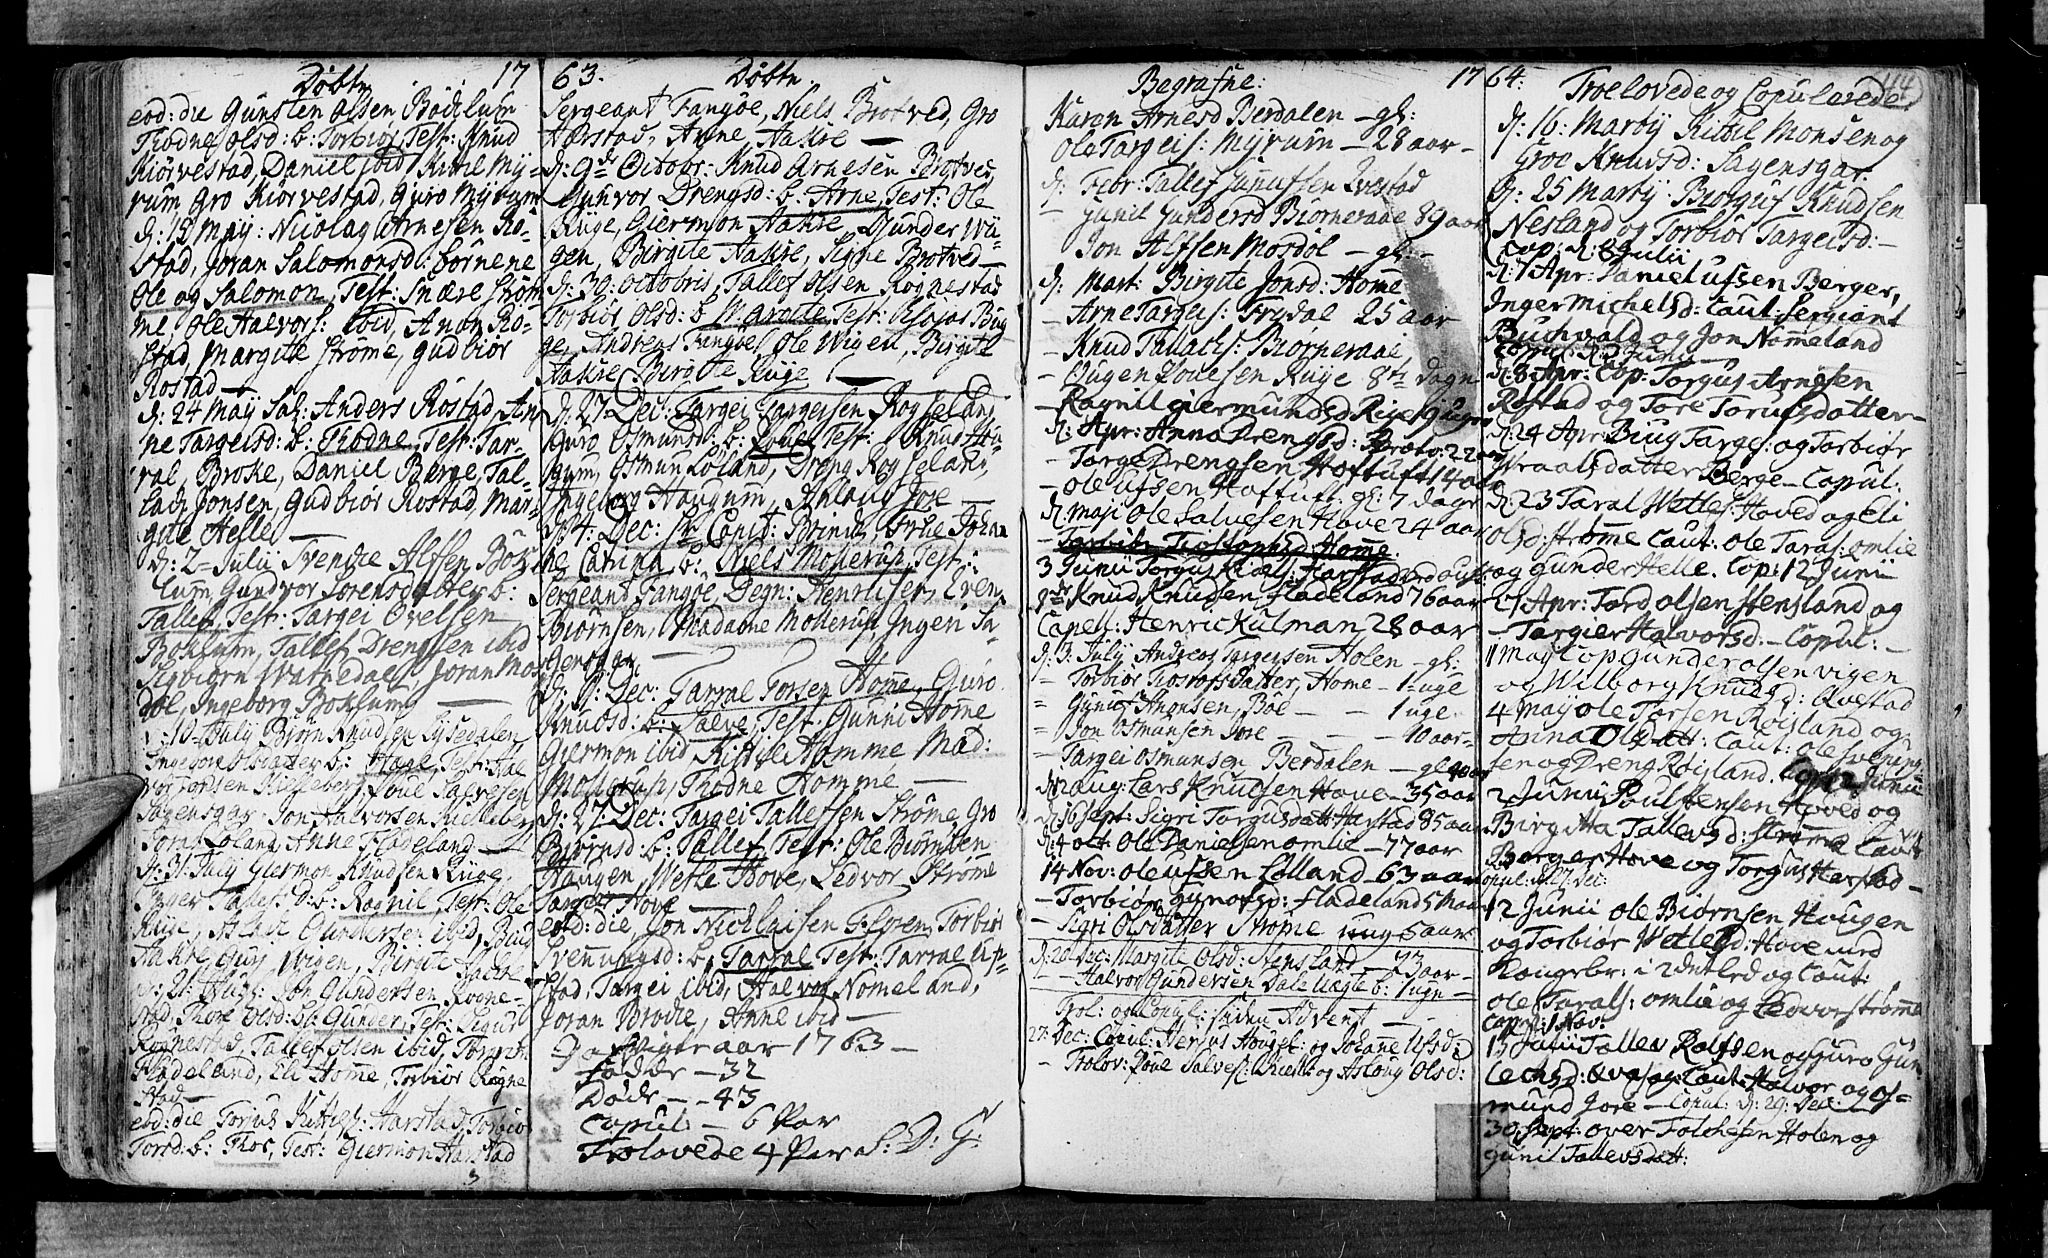 Døbte 17
eod: die Gunsten Olsen Bodelum
Thodne Olsd: b: Torbiør Test: Knud
Kiørvestad, Daniel ibid, Kitil My-
rum Gro Kiørvestad, Guro Myrum
d: 15 May: Nicolay Arnesen Ro-
stad, Joran Salomonsd: børnene
Ole og Salomon, Test: Snære Strøm
me, Ole Halvors: ibid, Anon Ro-
stad, Margite Strøme, Gudbiør
Rostad —
d: 24 May Sal: Anders Rostad, An-
ne Targeisd: b: Thodne, Test: Tar-
ral Broke, Daniel Berge, Tal-
lach Jonsen, Gudbiør Rostad, Mar-
gite Helle —
d: 2 Julii Svenche Alfsen Bok-
lum, Gundvor Sorensdatter b:
Tallef, Test: Targei Ovelsen
Boklum, Tallef Drengsen ibid
Sigbiørn Svartedal, Joran Mos
døl, Ingeborg Boklum —
10 July Biørn Knuds: Lysedalen
Ingebor Olsdatter b: Aage, Test: Hal
vor Torsen Killeberg, Poul Salvesen
Sagensgar Jon Halvorsen Killeberg
Joran Loland Anne Fladeland —
d: 31 July Giermon Knudsen Rüge,
Inger Tallefs: D: b: Ragnil, Test: Ole
Rüge, Gundersen ibid, Biug
Aakre Guri Wigen, Birgite Aakre
d: 21 Aug: Jon Gundersen Rogne-
stad, Thore Olsd: b: Gunder, Test: Sigur
Rognestad, Tallef Olsen ibid, Torbiør
Fladeland, Eli Homme, Torbiør Rogne
stad —
eod: die Torjus Kittils: Harstad, Torbiør
Torsd: b: Thor, Test: Giermon Harstad
63. Døbte.
Sergeant Fangøe, Niels Brotved, Gro
Harstad, Anne Aakre —
d: 9de Octobr: Knud Arnesen Brotved
Gunvor Drengsd: b: Arne, Test: Ole
Rüge, Giermon Aakre, Gunder Wü-
gen, Birgite Aakre, Signe Brotved —
d: 30 Octobris, Tallef Olsen Rognestad
Torbiør Olsd: b: Margite, Test: Biug
ge, Andreas Fangøe, Ole Wigen, Birgite
Aakre Birgite Ruge —
d: 27 Dec: Targei Targeisen Roysseland
Guro Osmundsd: b: Poul Test: Knud Hou-
gum, Osmun Loland, Dreng Roysseland,
Ingeborg Haugum, Aslaug Jore —
d: 4: Dec: Hr: Capit: Brinch, Frue Johan
ne Catrina b: Niels Mollerup, Test:
Sergeant Fangøe, Degn: Henrichsen, Even
Biørnsen, Madame Mollerup, Ingeri Sa-
gensgar —
d: Dec: Tarral Torsen Home, Guro
Knudsd: b: Salve, Test: Gunni Home
Giermon ibid Kittil Homme Mad:
Mollerup, Thodne Homme —
d: 27: Dec: Targei Tallefsen Strøme, Gro
Biørnsd: b: Tallef Test: Ole Biørnsen
Haugen, Wetle Hove, Ledvor Strøme
Targei Hove
eod: die, Jon Nicklaisen Torbiør
Svennungsd: b: Tarral Test: Tarral Up-
stad, Targei ibid, Halvor Nomeland,
Joran Brodie, Anne ibid —
aar 1763 —
Fødde — 32
Døde — 43
Copul: — 6 Par
Trolovede 4 Par S: D: G:
Begrafne: 17
Karen Arnesd Berdalen — gl:
Ole Targeis: Myrum — 28 aar —
d: Febr: Tallef Gunufsen Kvestad
— Gunil Gundersd Biorneraae 89 aar
Jon Alfsen Mosdøl — gl: —
d: Mart: Birgite Jonsd: Home
— Arne Targeis: Frødal 25 aar
— Knud Tallachs: Biørneraae,
— Ougen Povelsen Ruge 8te dagn
— Ragnil Giermundsd Rige 9 uger
d: Apr: Anna Drengsd: Brotv: 22 aar
— Targei Drengsen Hoftuft 14 aar
— Ole Ufsen Hoftuft gl: 7 dage
d: Maji Ole Salvesen Hove 24 aar
— Torbiør Tiostophsd Homme
3 Junii Torgus Harstad
9de Knud Knudsen Fladeland 76 aar
Capell: Henric Kulman 28 aar
d: 3: July Andreas Targeisen Holen — gl:
— Torbiør Tiosrofsdatter, Home — 1 uge
— Gunuf Anonsen, Bøe — — 1 uge
— Jon Osmunsen Jore — — 10 aar
— Targei Osmunsen Berdalen — gl 40 aar
d: 12 aug: Lars Knudsen Hove — 35 aar
d: 16 Sept: Sigri Torgusdatt: Harstad 85 aar
d: 4 oct Ole Danielsen Omlie — 77 aar
14 Nov: Ole Ufsen Lolland — 63 aar
— Torbiør Gunufsd: Fladeland 5 aar
— Sigri Olsdatter Strøme ung 6 aar
d: 20 Dec: Margite Olsd: Stensland 23 aar —
— Halvor Gundersen Dale Uægte b: 1 ugn —
Trol: og Copul: siden Advent — —
27: Dec: Copul: Herjus Houget: og Johane Ufsd:
— Trolov: Povel Salves: Kield og Aslaug Olsd:
64: Troelovede og Copulerede 114
d: 16: Marty Kittil Monsen og
Groe Knudsd: Sagensgar.
d: 25 Marty Biorgus Knudsen
Nesland og Torbiør Targeisd: —
Cop: d: 8 Julii
d: 1 Apr: Daniel Ufsen Berger,
Inger Michelsd: Caut: Sergiant
Buchvald og Jon Nomeland
Copul: d: Juny —
d: 8 Apr: Cop: Torgus Arnesen
Rostad og Tore Torgusdatter —
d: 24 Apr: Biug Targ: og Torbiør
Wraalsdatter Berge — Copul:
d: 23 Taral Wetles: Hoved og Eli
Olsd: Strømme Caut: Ole Tarals: Omlie
og Gunder Helle. Cop: 12 Junii
27 Apr: Tord Olsen Stensland og
— Targier Halvorsd: — Copul: —
11 May Cop Gunder Olsen Vigen
og Wilborg Knudsd: Qvestad
4 May Ole Torsen Røisland og
Anna Olsdatt: Caut: Ole Svenning-
sen og Dreng Røisland. Cop: 12 Junii
2 Junii Poul Hoved og
Birgitta Tallevsd: Strømme Caut:
Borger Hove og Torgus Harstad —
Copul: d: 27 Dec:
12 Junii Ole Biørnsen Hougen
og Torbiør Wetlesd: Hove med
Kongebr: i 2det led og Caut:
Ole Tarals: Omlie og Ledvor Strømme
Cop: d: 1 Nov:
13 Junii Tallev Rolfsen og Guro Gun-
lechsd: Caut: Halvor og Os-
mund Jore — Copul: d: 29: Dec:
30 Sept: Over Folchesen Holen og
Gunil Tallevsdatt: